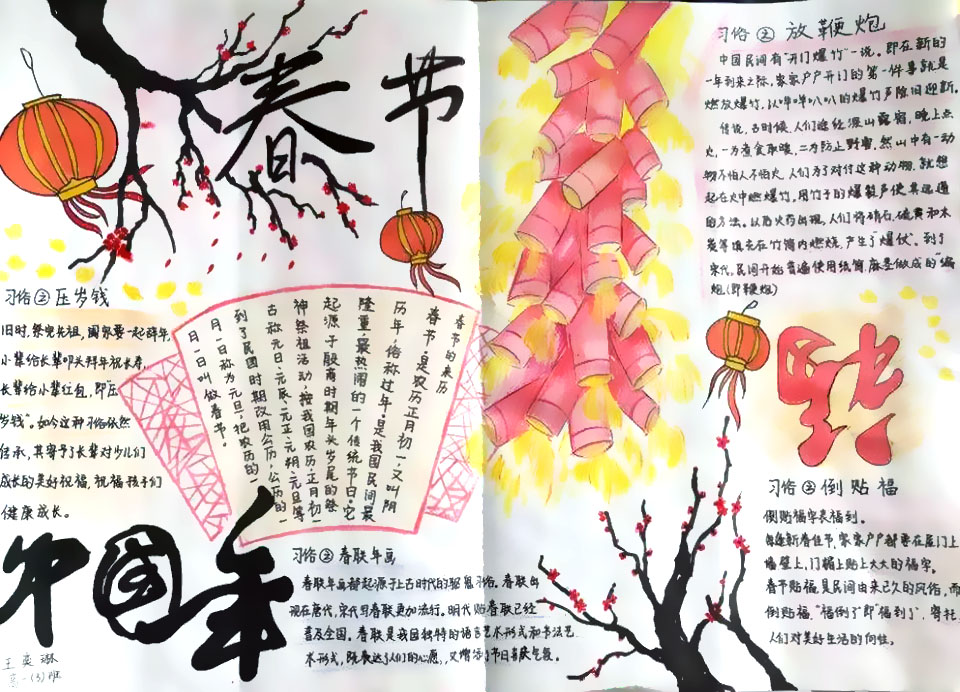 春节
习俗之压岁钱
旧时,祭完先祖,阖家要一起辞年,
小辈给长辈叩头拜年祝长寿,
长辈给小辈红包,即"压
岁钱"。如今这种习俗依然
传承,其寄予了长辈对少儿们
成长的美好祝福,祝福孩子们
健康成长。
春节的来历
春节,是农历正月初一,又叫阴
历年,俗称过年。是我国民间最
隆重最热闹的一个传统节日。它
起源于殷商时期年头岁尾的祭
神祭祖活动,按我国农历,正月初一
古称元日、元辰、元正、元朔、元旦等
到了民国时期改用公历,公历的一
月一日称为元旦,把农历的一
月一日叫做春节。
中国年
王英琳
高一(3)班
习俗之春联年画
春联年画都起源于上古时代的驱鬼习俗。春联出
现在唐代,宋代写春联更加流行。明代贴春联已经
普及全国。春联是我国独特的语言艺术形式和书法艺
术形式,既表达了人们的心愿,又增添了节日喜庆气氛。
习俗之放鞭炮
中国民间有"开门爆竹"一说。即在新的
一年到来之际,家家户户开门的第一件事就是
燃放爆竹,以哔哔叭叭的爆竹声除旧迎新。
传说,古时候,人们途经深山露宿,晚上点
火,一为煮食取暖,二为防止野兽,然山中有一动
物不怕人不怕火,人们为了对付这种动物,就想
起在火中燃爆竹,用竹子的爆裂声使其远遁
的方法。以后火药出现,人们将硝石、硫黄和木
炭等填充在竹筒内燃烧,产生了"爆仗"。到了
宋代,民间开始普遍使用纸筒、麻茎做成的"编
炮(即鞭炮)
福
习俗之倒贴福
倒贴福字表福到。
每逢新春佳节,家家户户都要在屋门上
墙壁上,门楣上贴上大大的福字。
春节贴福,是民间由来已久的风俗,而
倒贴福,"福倒了"即"福到了",寄托
人们对美好生活的向往。